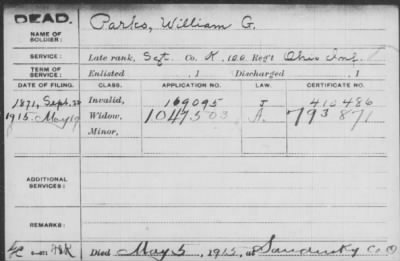 DEAD.
NAME OF SOLDIER: Parks, William G.
SERVICE: Late rank, Sgt. Co. K, 100 Reg't Ohio Inf.
TERM OF SERVICE: Enlisted , 1 Discharged , 1
DATE OF FILING. CLASS. APPLICATION NO. LAW. CERTIFICATE NO.
1871, Sept. 28 Invalid, 169095 J 415486
1915. May 19 Widow, 1047503 A. 793871
Minor,
ADDITIONAL SERVICES:
REMARKS:
Died May 5, 1915, at Sandusky Co. O